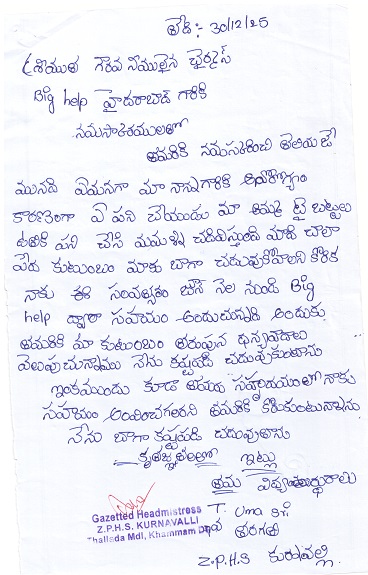 తేది:- 30/12/25
శ్రీయుత గౌరవ నీయులైన ఛైర్మన్
Big help హైదరాబాద్ గారికి
నమస్కారములతో
తమరికి నమస్కరించి తెలియజే
మునది ఏమనగా మా నాన్నగారికి అనారోగ్యం
కారణంగా ఏ పని చేయుడు మా అమ్మ బట్టలు
ఉతికె పని చేసి మమ్మల్ని చదివిస్తుంది మాది చాలా
పేద కుటుంబం మాకు బాగా చదువుకోవాలని కోరిక
నాకు ఈ సంవత్సరం జూన్ నెల నుండి Big
help ద్వారా సహాయం అందుచున్నది అందుకు
తమరికి మా కుటుంబం తరుపున ధన్యవాదాలు
తెలుపుచున్నాము నేను కష్టపడి చదువుకుంటాను
ఇంకముందు కూడ తమరు సహృదయంతో నాకు
సహాయం అందించగలరని తమరికి కోరుకుంటున్నాను
నేను బాగా కష్టపడి చదువుతాను
కృతజ్ఞతలతో ఇట్లు
తమ విద్యార్థురాలు
T. Uma Sri
తరగతి
Z.P.H.S కుర్నవల్లి.
Gazetted Headmistress
Z.P.H.S. KURNAVALLI
Thallada Mdl, Khammam